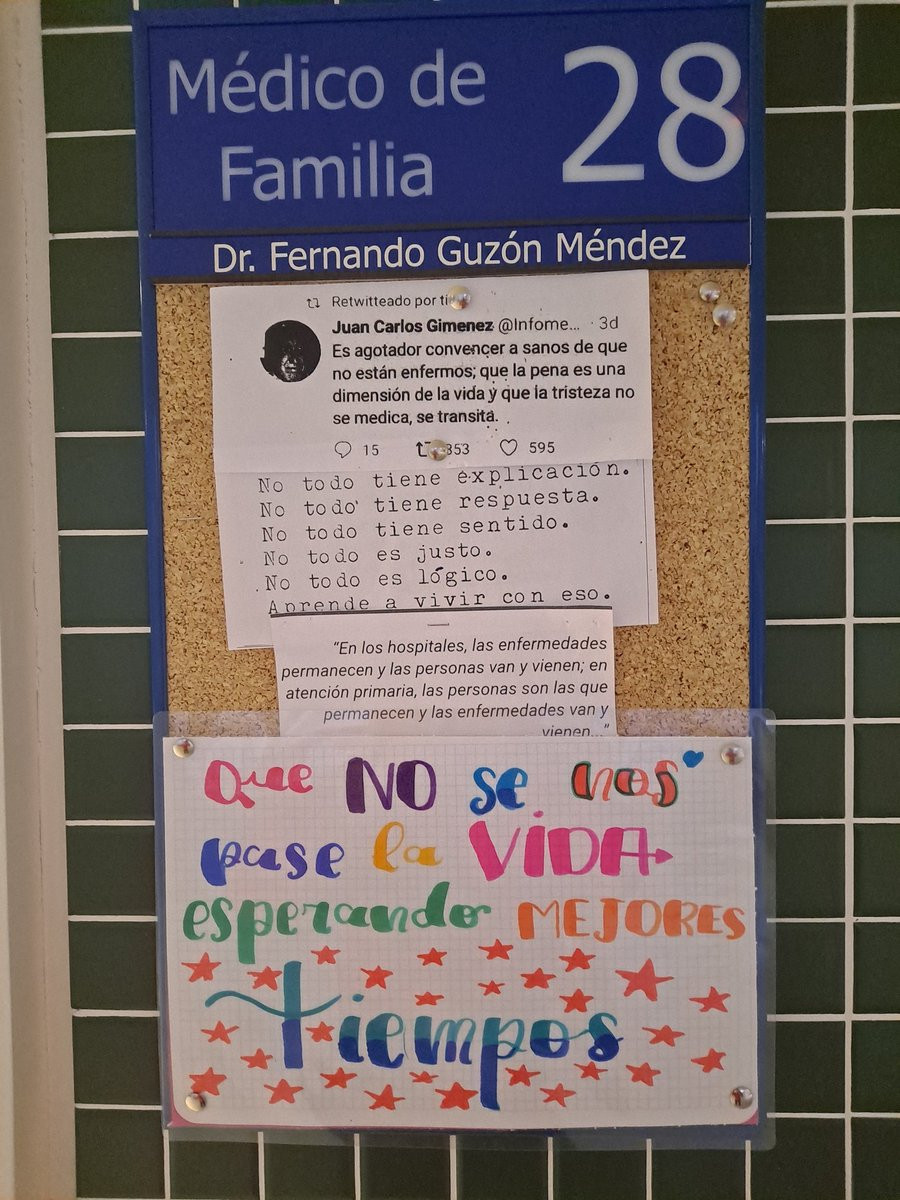 Médico de
Familia
28
Dr. Fernando Guzón Méndez
Retwitteado por ti
Juan Carlos Gimenez @Infome... · 3d
Es agotador convencer a sanos de que
no están enfermos; que la pena es una
dimensión de la vida y que la tristeza no
se medica, se transita.
15 353 595
No todo tiene explicación.
No todo tiene respuesta.
No todo tiene sentido.
No todo es justo.
No todo es lógico.
Aprende a vivir con eso.
“En los hospitales, las enfermedades
permanecen y las personas van y vienen; en
atención primaria, las personas son las que
permanecen y las enfermedades van y
vienen...”
Que NO se nos
pase la VIDA
esperando MEJORES
Tiempos